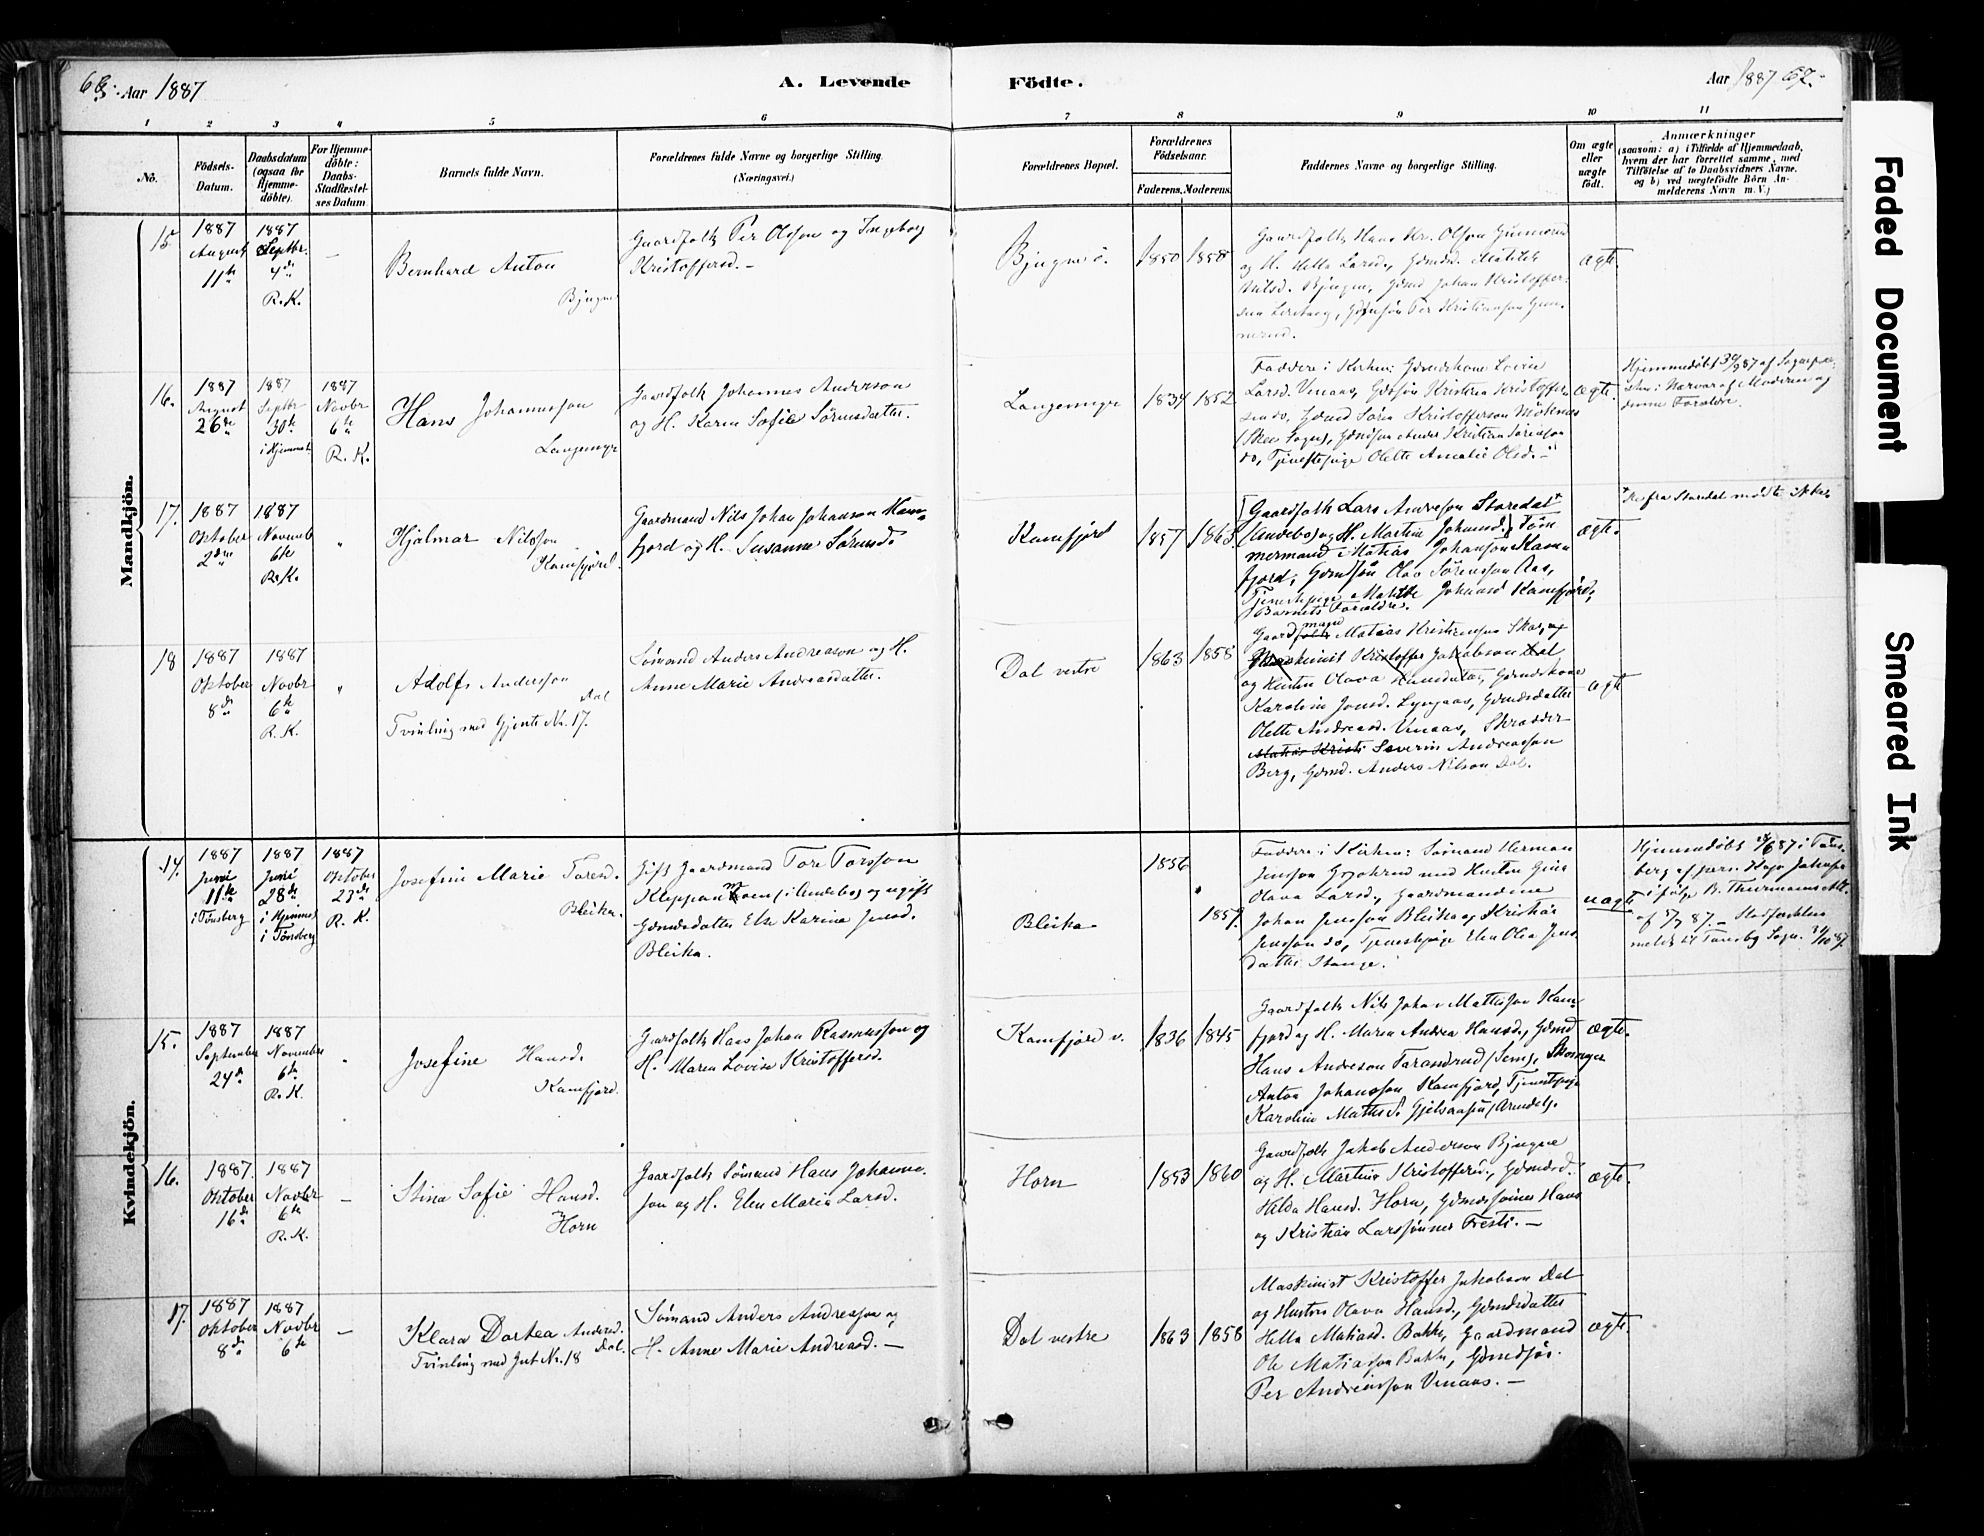 Aar 1887
A. Levende
Födte.
Aar 1887 67.
1 2 3 4 5 6 7 8 9 10 11
No.
Födsels-
Datum.
Daabsdatum
(ogsaa for
Hjemme-
döbte).
For Hjemme-
döbte:
Daabs-
Stadfæstel-
ses Datum
Barnets fulde Navn.
Forældrenes fulde Navne og borgerlige Stilling.
(Næringsvei.)
Forældrenes Bopæl.
Forældrenes
Födselsaar.
Faderens. Moderens.
Faddernes Navne og borgerlige Stilling.
Om ægte
eller
uægte
födt.
Anmærkninger
(saasom: a) i Tilfælde af Hjemmedaab,
hvem der har forrettet samme, med
Tilföielse af to Daabsvidners Navne,
og b) ved uægtefödte Börn An-
melderens Navn m. V.)
Mandkjön.
15.
1887
August
11te
1887
Septbr.
4de
R. K.
—
Bernhard Anton
Bjugne
Gaardfolk Per Olsson og Ingeborg
Kristoffersd. —
Bjugne ö.
1850
1858
Gaardfolk Hans Kr. Olsson Gunnerud
og H. Helle Larsd., Gdmdsd. Matilde
Nilsd. Bjugne, Gdmd Johan Kristoffer-
sen
Per Kristianson Gun-
nerud.
ægte.
16.
1887
August
26de
1887
Septbr
30te
i Hjemmet
1887
Novbr
6te
R. K.
Hans Johannesson
Langemyr
Gaardfolk Johannes Anderson
og H. Karen Sofie Sörensdatter.
Langemyr
1834
1852
Faddere i Kirken: Gdmdskone Lovise
Larsd. Vinaas, Gdmdsön Kristen Kristoffer-
sen do, Gdmd Sören Kristofferson
(Skee Sogn), Gdmdsön Anders Kristian Sörensson
do, Tjenestepige Olette Amalie Olsd. —
ægte.
Hjemmedöbt 30/9 87 af Sognepræ-
sten i Nærvær af Moderen og
dennes Forældre.
17.
1887
Oktober
2den
1887
Novemb
6te
R. K.
"
Hjalmar Nilsson
Kamfjord.
Gaardmand Nils Johan Johanson Kam-
fjord og H. Susanne Sörensd.
Kamfjord
1857
1863.
[Gaardfolk Lars Andreson Storedal*
(Andebo) og H. Martine Johansd.] Töm-
mermand Matias Johanson Kam-
fjord, Gdmdsön Olav Sörensson Aas,
Tjenestepige Matilde Johansd Kamfjord,
Barnets Forældre.
ægte.
* De fra Storedal mödte ikke
18
1887
Oktober
8de
1887
Novbr
6te
R. K.
"
Adolf Andersson
Dal
Tvinling med Gjente Nr. 17.
Sömand Anders Andreason og H.
Anne Marie Andreasdatter.
Dal vestre
1863
1858
Gaardfolk mand Matias Kristensen
Maskinist Kristoffer Jakobson Dal
og Hustru Olava Hansdatter, Gdmdskone
Karoline Jonsd. Lyngaas, Gdmdsdatter
Olette Andreasd. Vinaas, Skrædder
Matias Kristi Severin Andreasson
Berg, Gdmd. Anders Nilson Dal.
ægte
Kvindekjön.
14.
1887
Juni
11te
i Tönsberg
1887
Juni
28de
i Hjemmet
i Tönsberg
1887
Oktober
23de
R. K.
Josefine Marie Toresd.
Bleika.
Gift Gaardmand Tore Torsson
Kleppanmoen (i Andebo) og ugift
Gdmdsdatter Else Karine Jensd.
Bleika.
Bleika
1856
1857.
Faddere i Kirken: Sömand Herman
Jensson med Hustru Gina
Olava Larsd., Gaardmændene
Johan Jensson Bleika og Kristian
Jensson do, Tjenestepige Elen Olea Jens-
datter Stange.
uægte
Hjemmedöbt 28/6 87 i Töns-
berg af
ifölge
af Stadfæstelsen
meldt til Tönsberg Sogn. 31/10 87.
15.
1887
September
24de
1887
November
6te
R. K.
"
Josefine Hansd.
Kamfjord.
Gaardfolk Hans Johan Rasmusson og
H. Maren Lovise Kristoffersd.
Kamfjord v.
1836
1845
Gaardfolk Nils Johan Mattisson Kam-
fjord og H. Maren Andrea Hansd., Gdmd
Hans Andreson Tarandrud (Sem), Skomager
Anton Johansson Kamfjord, Tjenestepige
Karoline Mattisd. Gjelsaasen (Arendal).
ægte.
16.
1887.
Oktober
16de
1887
Novbr
6te
R. K.
—
Stina Sofie Hansd.
Horn
Gaardfolk Sömand Hans Johannes-
son og H. Elen Marie Larsd.
Horn
1853
1860
Gaardfolk Jakob Anderson Bjugne
og H. Martine Kristoffersd., Gdmdsd.
Hilda Hansd. Horn, Gdmdssönner Hans
og Kristian Larssönner Fresti. —
ægte.
17.
1887
Oktober
8de
1887
Novbr
6te
—
Klara Dortea Andersd.
Dal.
Tvinling med Gut Nr. 18
Sömand Anders Andresson og
H. Anne Marie Andreasd. —
Dal vestre
1863
1858
Maskinist Kristoffer Jakobson Dal
og Hustru Olava Hansd., Gdmdsdatter
Helle Matiasd. Bakke, Gaardmand
Ole Matiasson Bakke, Gdmdsön.
Per Andreasson Vinaas. —
ægte.
Faded Document
Smeared Ink